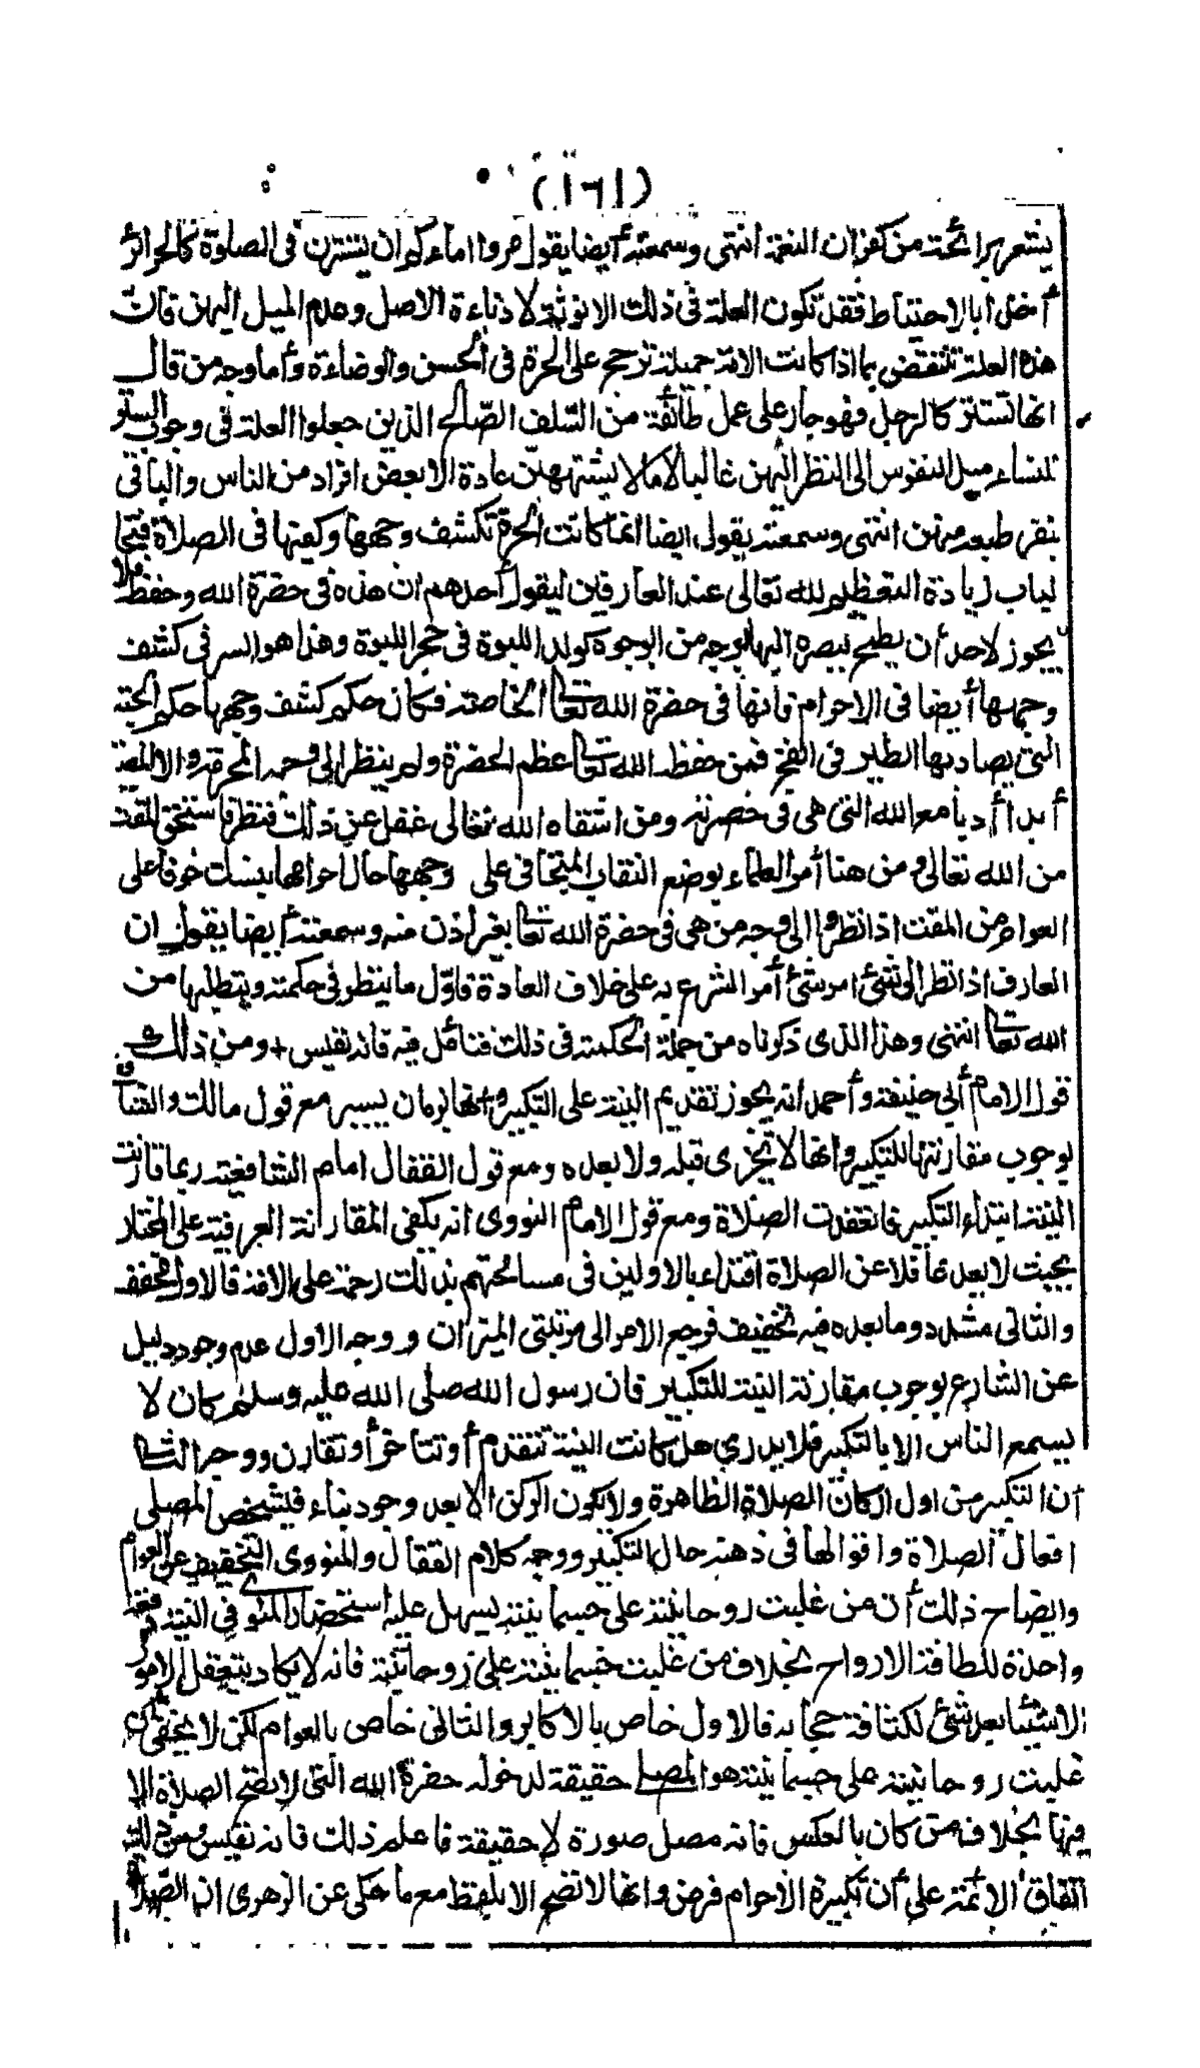 (١٦١)
يشعر برائحة من كفران النعمة انتهى وسمعته أيضا يقول مروا اماءكم ان يستترن فى الصلوة كالحرائر
أخذا بالاحتياط فقد تكون العلة فى ذلك الانوثة لا دناءة الاصل وعدم الميل اليهن فان
هذه العلة تنتقض بما اذا كانت الامة جميلة ترجح على الحرة فى الحسن والوضاءة وأما وجه من قال
انها تستتر كالرجل فهو جار على عمل طائفة من السّلف الصّالح الذين جعلوا العلة فى وجوب الستر
للنساء ميل النفوس الى النظر اليهن غالبا لا ما لا يشتهيهنّ عادة الا بعض افراد من الناس والباقى
ينفر طبعه منهن انتهى وسمعته يقول ايضا انما كانت الحرة تكشف وجهها وكفيها فى الصلاة فتحا
لباب زيادة التعظيم لله تعالى عند العارفين ليقول أحدهم ان هذه فى حضرة الله وحفظه فلا
يجوز لاحد أن يطمح ببصره اليها بوجه من الوجوه كولد اللبوة فى حجر اللبوة وهذا هو السر فى كشف
وجهها أيضا فى الاحرام فانها فى حضرة الله تعالى الخاصة فكان حكم كشف وجهها حكم الحبة
التى يصاد بها الطير فى الفخ فمن حفظه الله تعالى عظم الحضرة ولم ينظر الى وجه المحرمة والا المصلية
أبدا أدبا مع الله التى هى فى حضرته ومن اشقاه الله تعالى غفل عن ذلك فنظر فاستحق المقت
من الله تعالى ومن هنا أمر العلماء بوضع النقاب المتجافى على وجهها حال احرامها بينسات خوفا على
العوام من المقت اذا نظروا الى وجه من هى فى حضرة الله تعالى بغير اذن منه وسمعته أيضا يقول ان
العارف اذا نظر الى شئ امر شئ أمر الشرع به على خلاف العادة فاوّل ما ينظر فى حكمته ويتطلبها من
الله تعالى انتهى وهذا الذى ذكرناه من جملة الحكمة فى ذلك فتأمل فيه فانه نفيس + ومن ذلك
قول الامام أبى حنيفة وأحمد انه يجوز تقديم النية على التكبيرة بزمان يسير مع قول مالك والشافعى
بوجوب مقارنتها للتكبير وانها لا تجزى قبله ولا بعده ومع قول القفال امام الشافعية ربما قارنت
النية ابتداء التكبير فانعقدت الصلاة ومع قول الامام النووى انه يكفى المقارنة العرفية على المختار
بحيث لا يعد غافلا عن الصلاة اقتداء بالاولين فى مسامحتهم بذلك رحمة على الامة فالاول مخفف
والثانى مشدد وما بعده فيه تخفيف فرجع الامر الى مرتبتى الميزان ووجه الاول عدم وجود دليل
عن الشارع بوجوب مقارنة النية للتكبير فان رسول الله صلى الله عليه وسلم كان لا
يسمع الناس الا بالتكبير فلا يدرى هل كانت النية تتقدم أو تتاخر أو تقارن ووجه الثانى
أن التكبير من اول اركان الصلاة الظاهرة ولا يكون الركن الا بعد وجود بناء فيشخص المصلى
افعال الصلاة واقوالها فى ذهنه حال التكبير ووجه كلام القفال والنووى التخفيف عن العوام
وايضاح ذلك أن من غلبت روحانيته على جسمانيته يسهل عليه استحضار المنوى فى النية دفعة
واحدة للطافة الارواح بخلاف من غلبت جسمانيته على روحانيته فانه لا يكاد يتعقل الامور
الا شيئا بعد شئ لكثافة حجابه فالاول خاص بالاكابر والثانى خاص بالعوام لكن لا يخفى ان من
غلبت روحانيته على جسمانيته هو المصلى حقيقة لدخوله حضرة الله التى لا تصح الصلاة الا
فيها بخلاف من كان بالعكس فانه مصل صورة لا حقيقة فاعلم ذلك فانه نفيس ومن ذلك
اتفاق الائمة على أن تكبيرة الاحرام فرض وانها لا تصح الا بلفظ مع ما حكى عن الزهرى ان الصّلاة